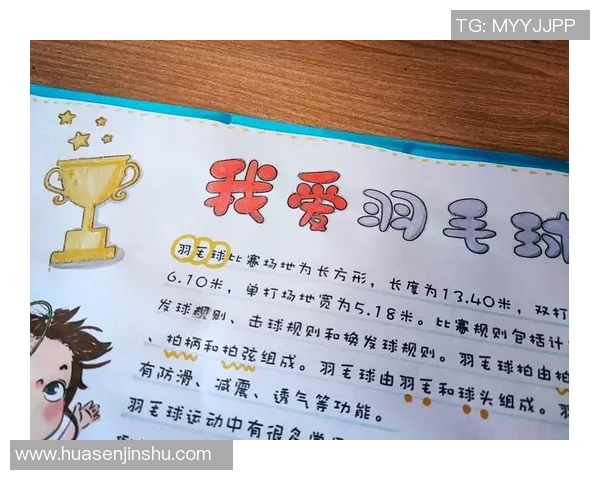 TG: MYYJJPP
我爱羽毛球
羽毛球比赛场地为长方形，长度为13.40米，双打
6.10米，单打场地宽为5.18米。比赛规则包括计
发球规则、击球规则和换发球规则。羽毛球拍由拍
、拍柄和拍弦组成。羽毛球由羽毛和球头组成。
有防滑、减震、透气等功能。
羽毛球运动中有很多
www.huasenjinshu.com